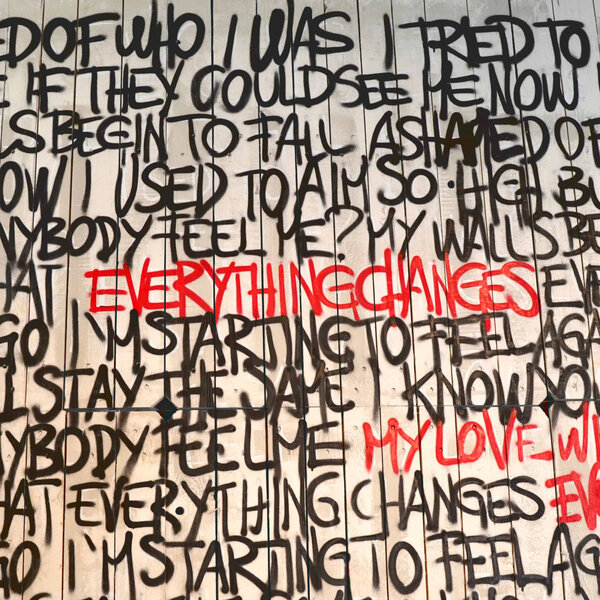 ED OF WHO I WAS I TRIED TO
E IF THEY COULD SEE ME NOW
LS BEGIN TO FALL ASHAMED OF
OW I USED TO AIM SO HIGH BU
NYBODY FEEL ME? MY WALLS BE
HAT EVERYTHING CHANGES EVE
GO I'M STARTING TO FEEL AGA
LL STAY THE SAME I KNOW YOU
NYBODY FEEL ME MY LOVE_WI
HAT EVERYTHING CHANGES EV
GO I'M STARTING TO FEEL AG